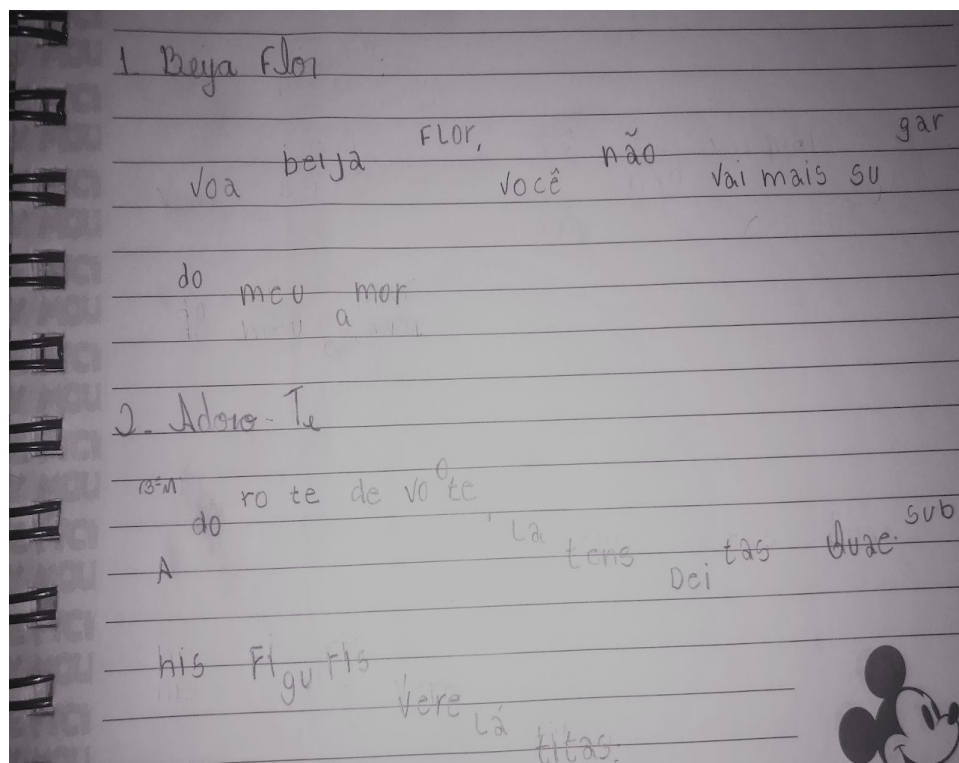 1. Beija Flor
Voa beija FLOR, você não vai mais su gar
do meu a mor
2. Adoro-Te
A do ro te de vo te, La tens Dei tas Quae sub
his FI gu rIs Vere Lá titas.